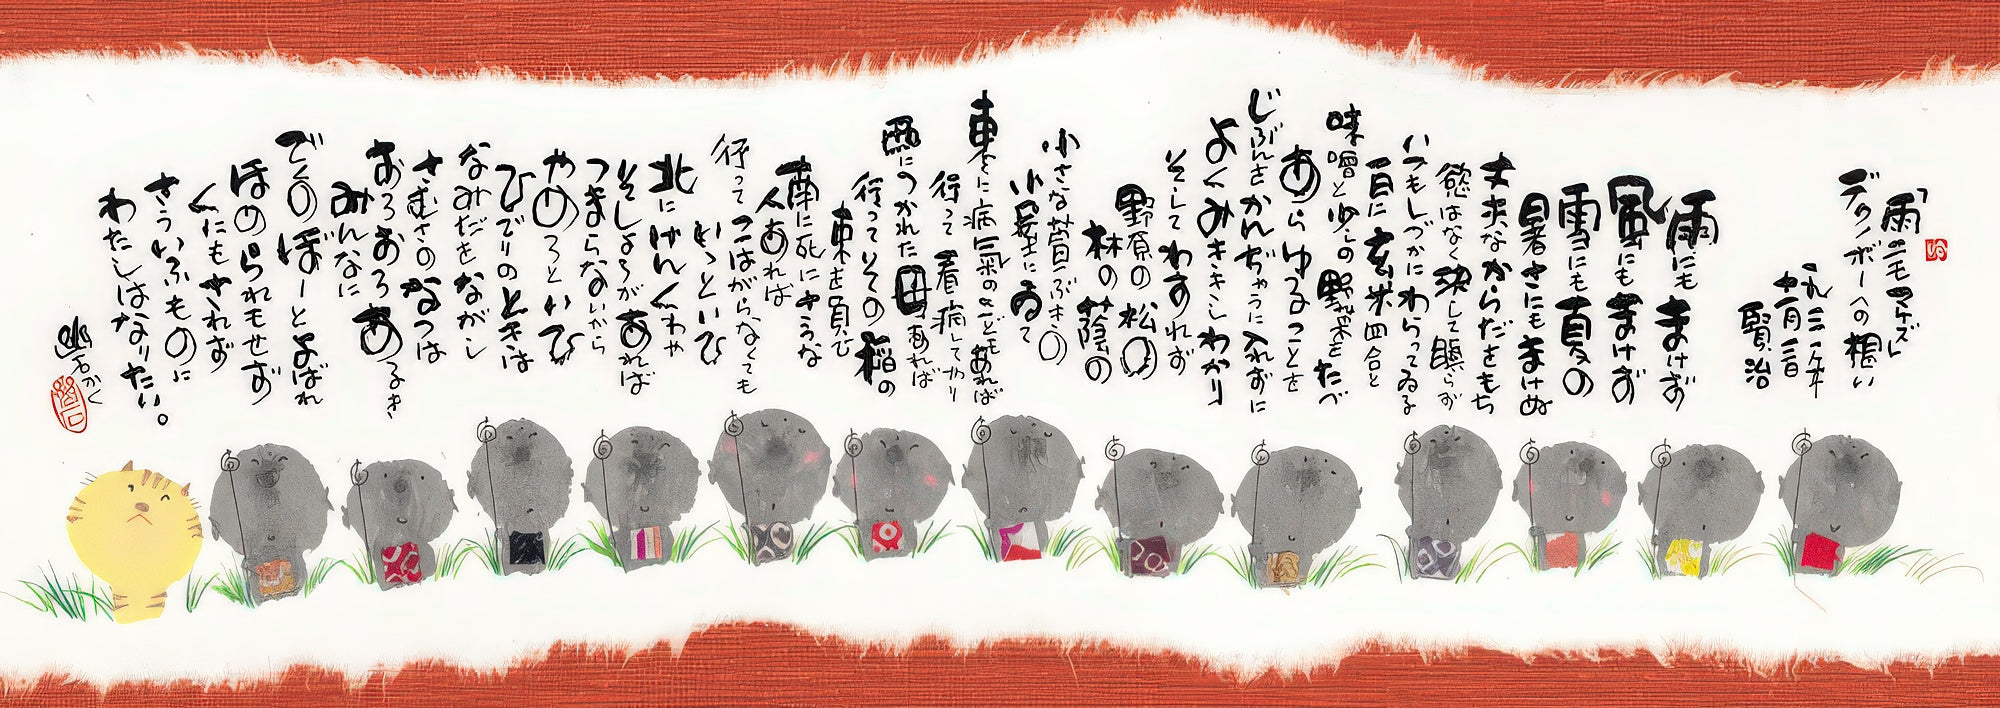 「雨ニモマケズ」
デクノボーへの想い
一九三一年
十一月三日
賢治
雨にもまけず
風にもまけず
雪にも夏の
暑さにもまけぬ
丈夫なからだをもち
慾はなく決して瞋らず
いつもしづかにわらってゐる
一日に玄米四合と
味噌と少しの野菜をたべ
あらゆることを
じぶんをかんぢゃうに入れずに
よくみききしわかり
そしてわすれず
野原の松の
林の蔭の
小さな萱ぶきの
小屋にゐて
東に病氣のこどもあれば
行って看病してやり
西につかれた母あれば
行ってその稲の
束を負ひ
南に死にさうな
人あれば
行ってこはがらなくても
いゝといひ
北にけんくゎや
そしょうがあれば
つまらないから
やめろといひ
ひでりのときは
なみだをながし
さむさのなつは
おろおろあるき
みんなに
でくのぼーとよばれ
ほめられもせず
くにもされず
さういふものに
わたしはなりたい。